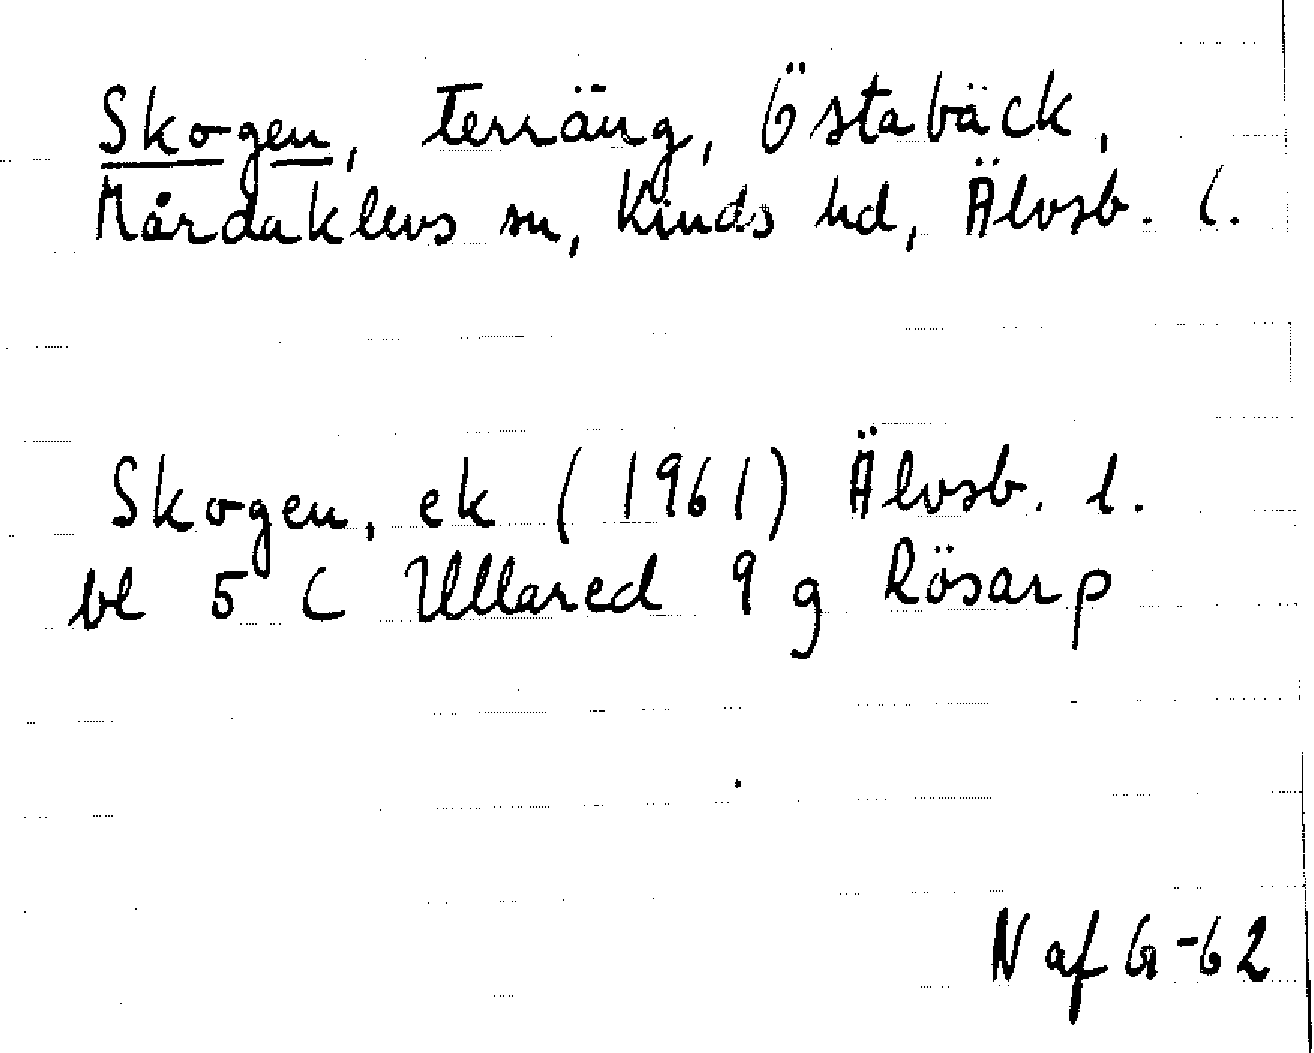 Skogen, Terräng, Östabäck,
Mårdaklevs sn, Kinds hd, Älvsb. l.
Skogen, ek (1961) Älvsb. l.
bl 5 C Ullared 9 g Rösarp
N af G-62